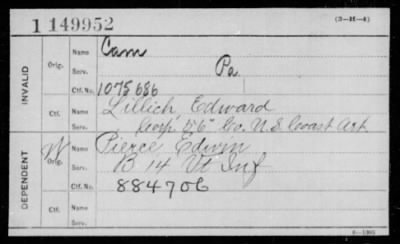 1 149952
(3—H—4)
INVALID
Orig.
Name Cam
Serv. Pa.
Ctf. No. 1075686
Ctf.
Name Lillich, Edward
Serv. Corp "56" Co. U.S. Coast Art.
DEPENDENT
W
Orig.
Name Pierce Edwin
Serv. B 14 Vt Inf
Ctf. No. 884706
Ctf.
Name
Serv.